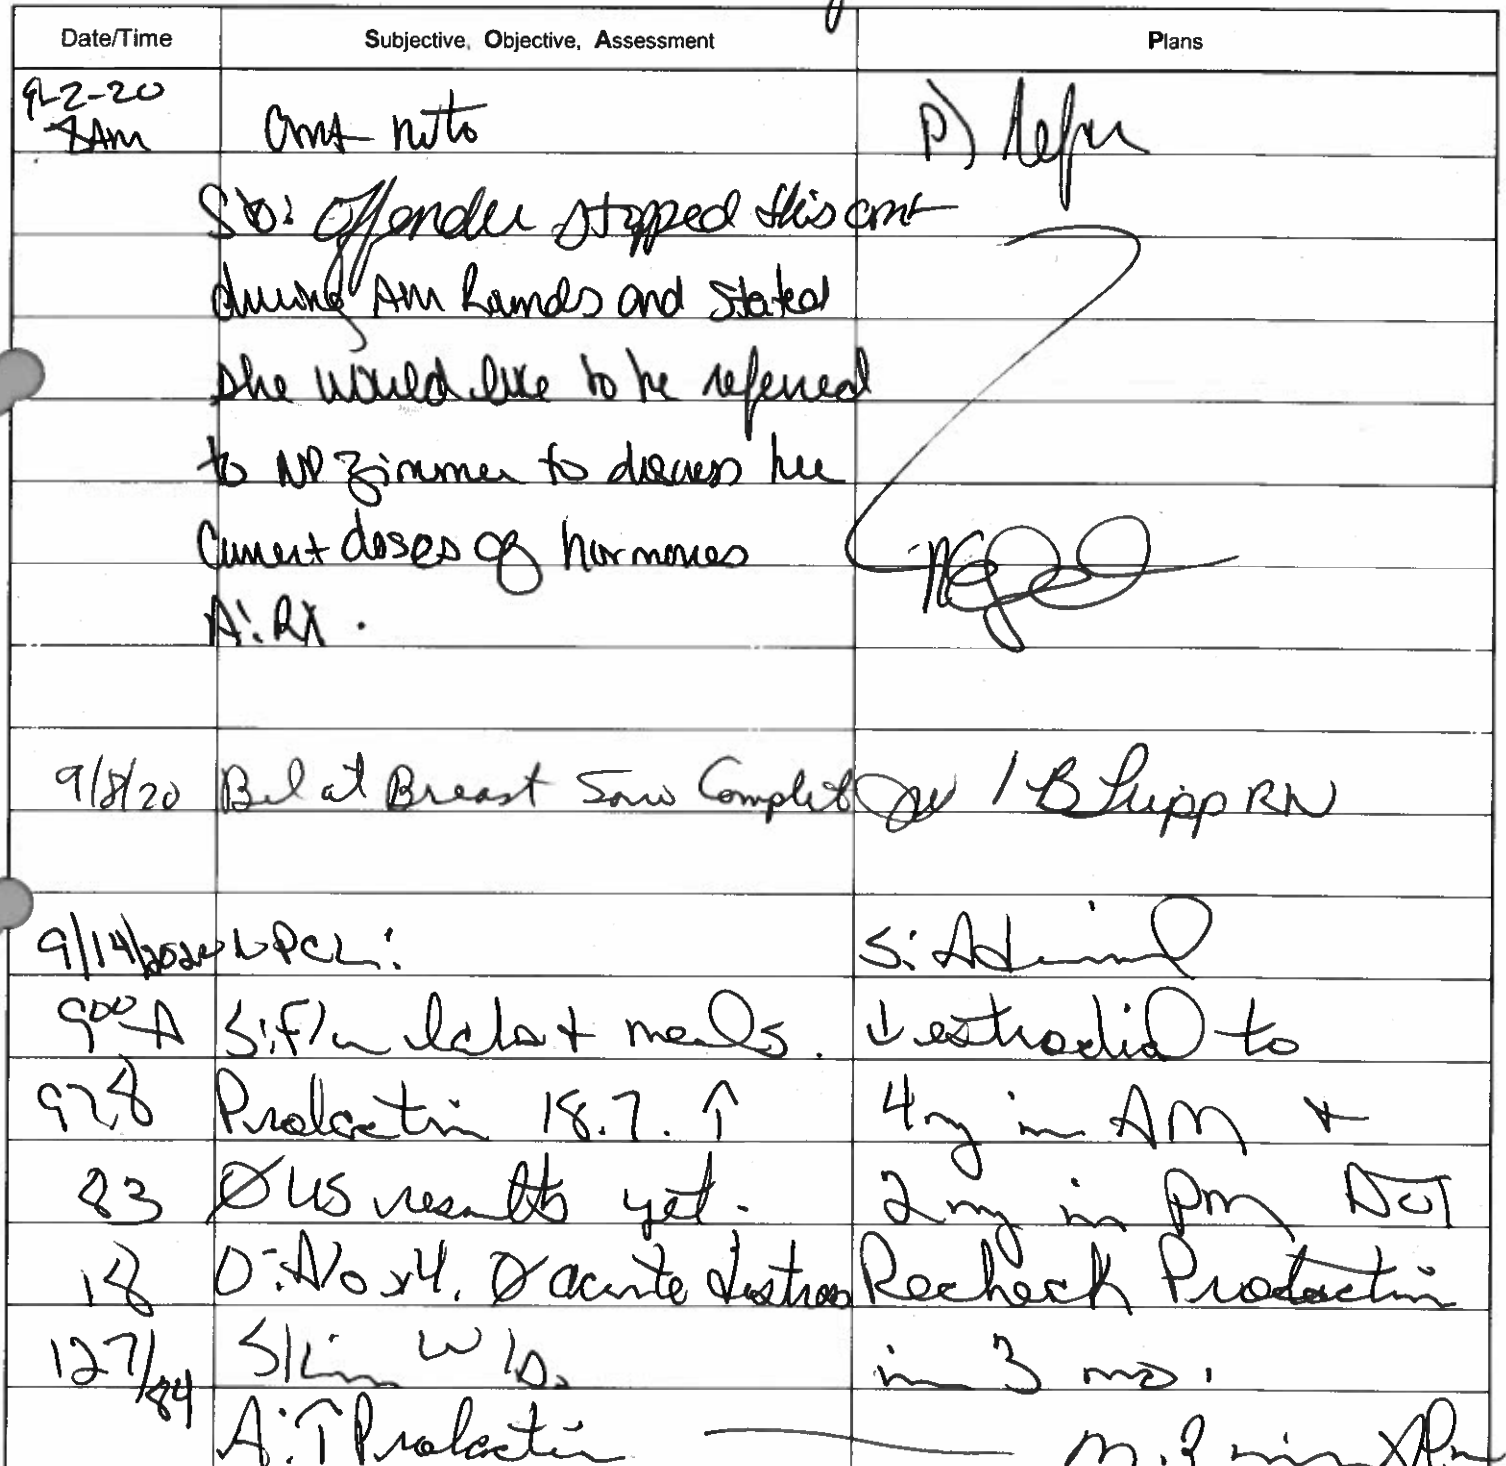 Date/Time Subjective, Objective, Assessment Plans
9-2-20 cmt note P) Refer
8AM
S/O: offender stopped this cmt
during AM Rounds and stated
she would like to be referred
to NP Zimmer to discuss her
current doses of hormones
A: Rx.
9/8/20 Bilat Breast Sono Complete / B Lupp RN
9/14/2020 NPCL: S: Ad
9:00 A S: F/u labs + meds. ↓ estradiol to
97.8 Prolactin 18.7. ↑ 4mg in AM +
83 Ø US results yet. 2mg in pm DOT
18 O: A/O x4. Ø acute distress Recheck Prolactin
127/84 Skin W/D. in 3 mo.
A: ↑ Prolactin